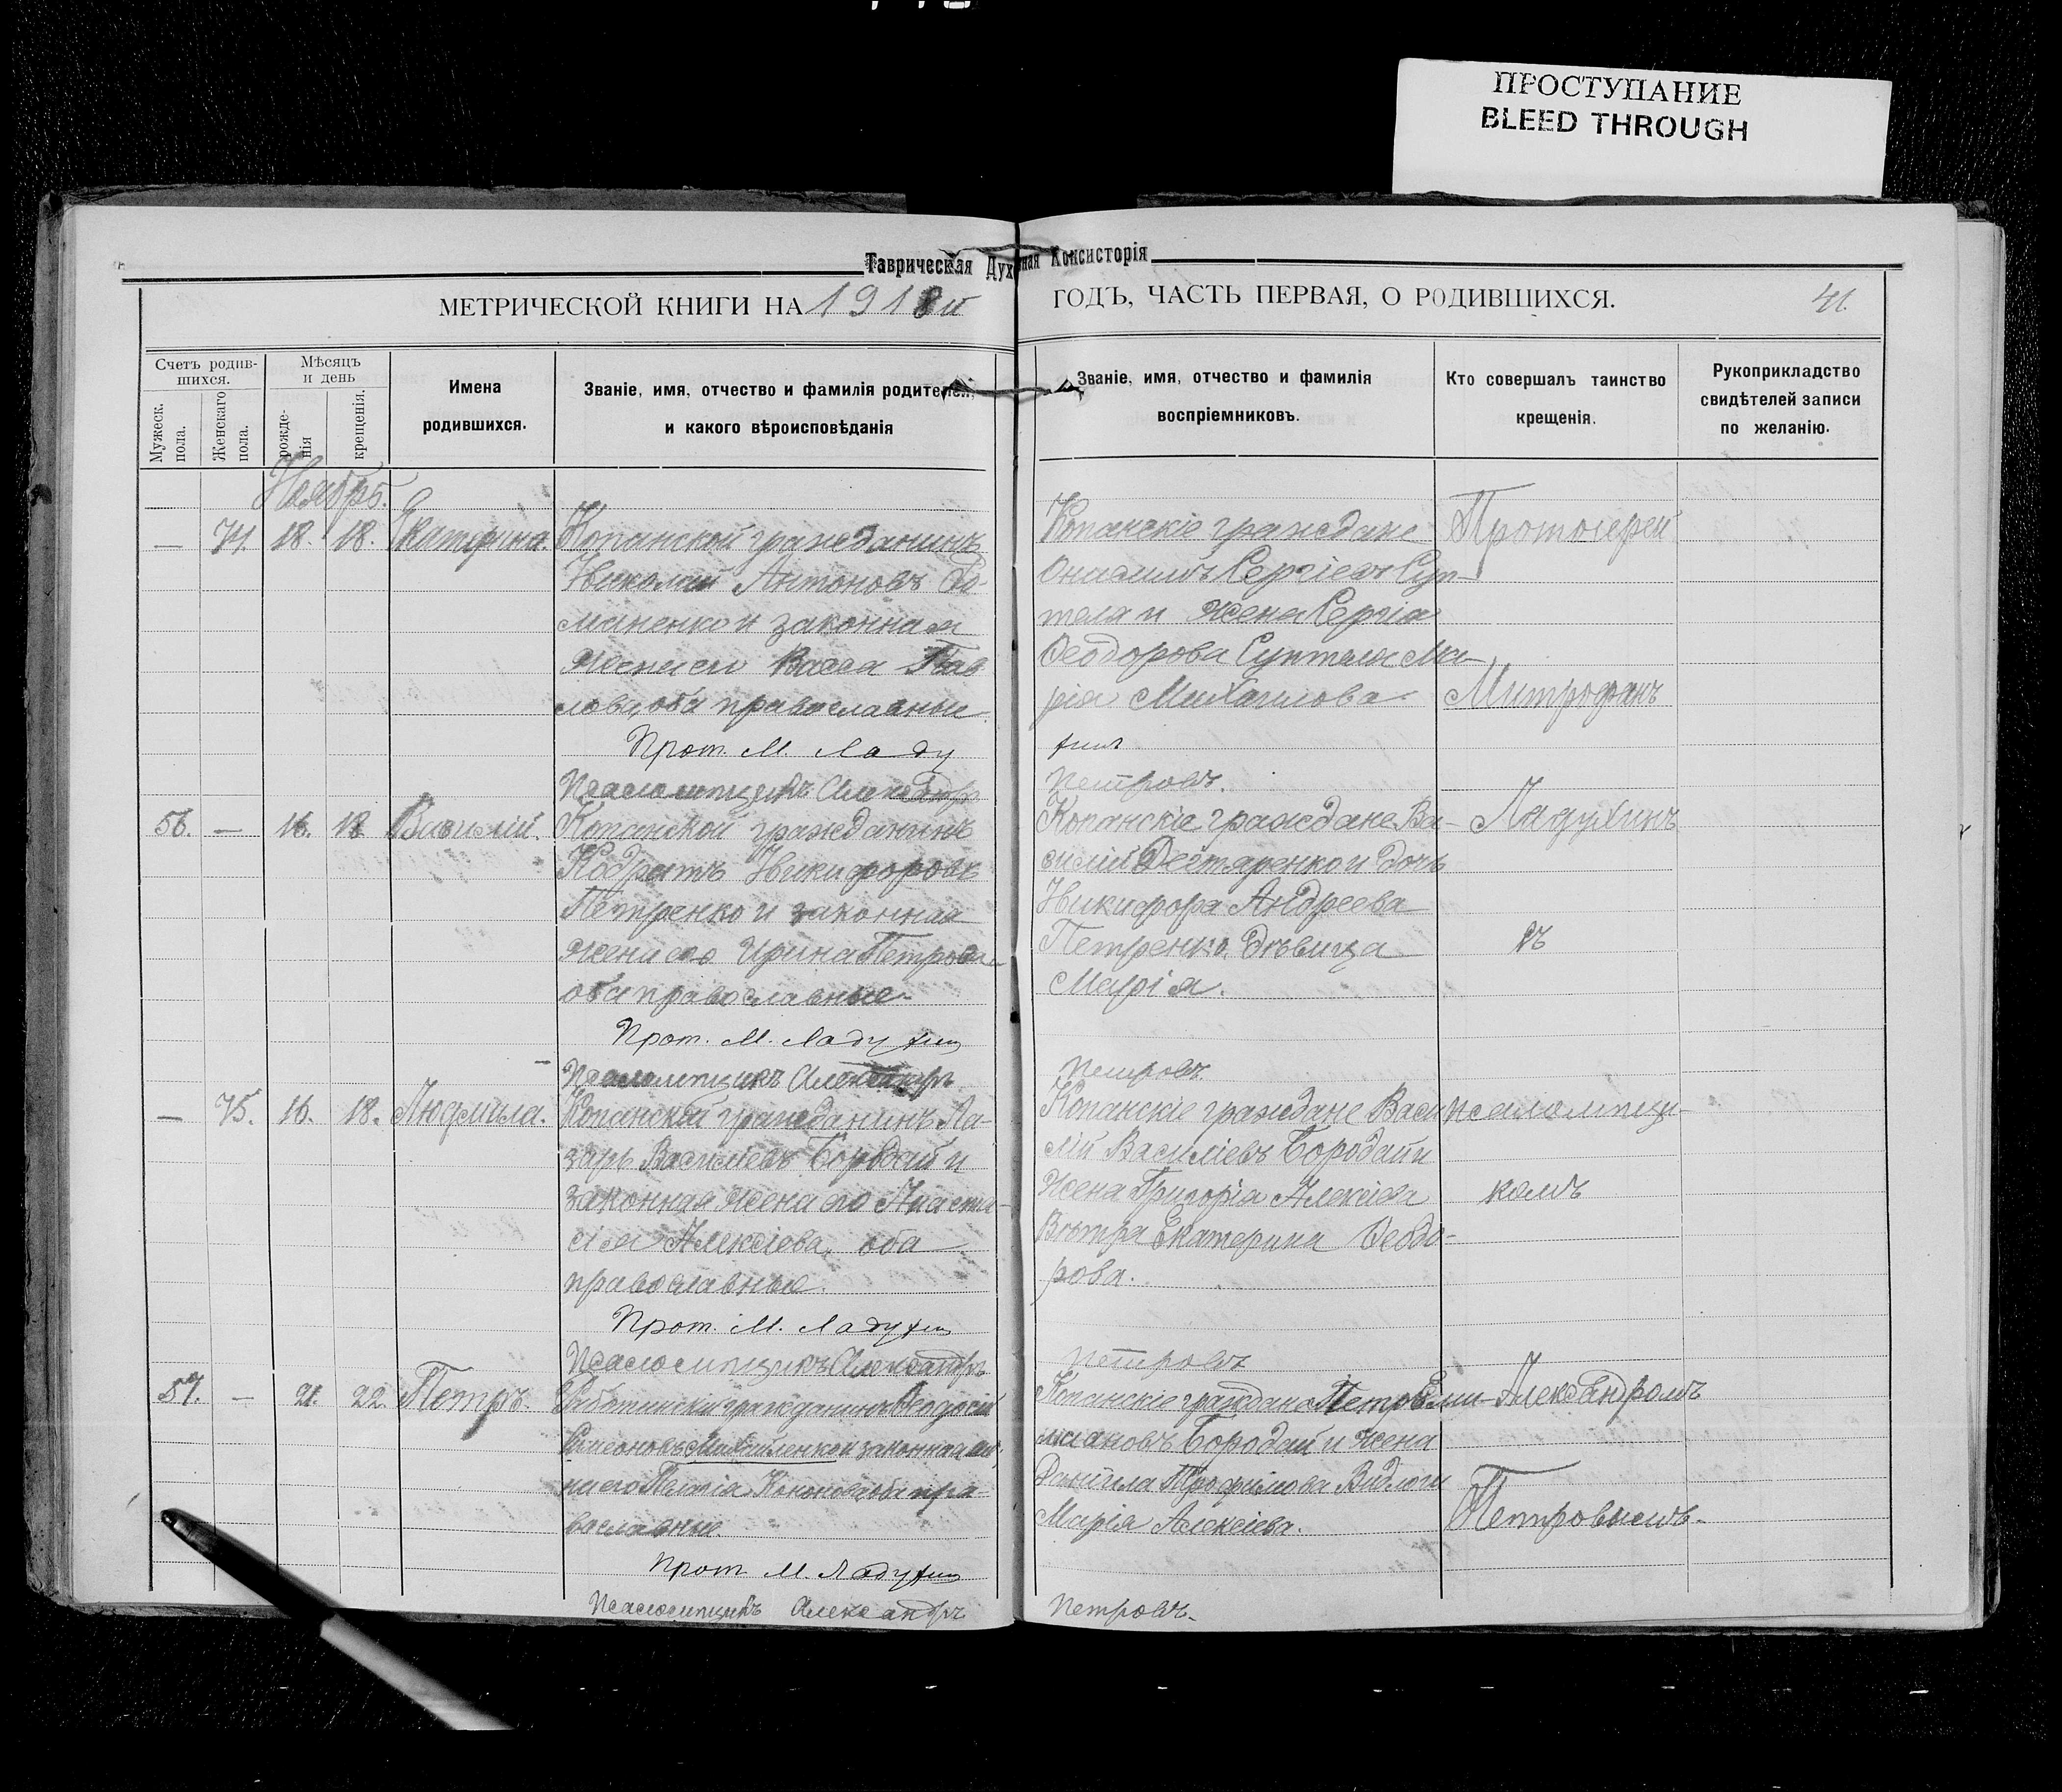 ПРОСТУПАНИЕ
BLEED THROUGH
Таврическая Духовная Консисторія
МЕТРИЧЕСКОЙ КНИГИ НА 1918й ГОДЪ, ЧАСТЬ ПЕРВАЯ, О РОДИВШИХСЯ. 41.
Счетъ родив-
шихся.
Мужеск. пола.
Женскаго пола.
Мѣсяцъ
и день
рожде-
нія
крещенія.
Имена
родившихся.
Званіе, имя, отчество и фамилія родителей,
и какого вѣроисповѣданія
Званіе, имя, отчество и фамилія
воспріемниковъ.
Кто совершалъ таинство
крещенія.
Рукоприкладство
свидѣтелей записи
по желанію.
Ноябрь.
— 74. 18. 18. Екатерина.
Копанской гражданинъ
Николай Антоновъ
маненко и законная
жена его Васса Пав
лова, оба православные
Прот. М. Ладу
Псаломщикъ Александръ
Копанскіе граждане
Онисимъ Сергіевъ Суп-
теля и жена Сергія
Ѳеодорова Суптеля Ма-
рія Михаилова.
хинъ
Петровъ.
Протоіерей
Митрофанъ
56. — 16. 18 Василій.
Копанской гражданинъ
Кодратъ Никифоровъ
Петренко и законная
жена его Ирина Петрова
оба православные.
Прот. М. Ладухин
Псаломщикъ Александръ
Копанскіе граждане Ва-
силій Дегтяренко и дочь
Никифора Андреева
Петренко дѣвица
Марія.
Петровъ.
Ладухинъ
съ
— 75. 16. 18. Людмила.
Копанской гражданинъ Ла-
зарь Василіевъ Бородай и
законная жена его Анаста-
сія Алексіева, оба
православные.
Прот. М. Ладухин
Псаломщикъ Александръ
Копанскіе граждане Васи
лій Василіевъ Бородай и
жена Григорія Алексіева
Вѣтра Екатерина Ѳеодо-
рова.
Петровъ
псаломщи-
комъ
57. — 21. 22. Петръ.
гражданинъ Ѳеодосій
Симеоновъ Михайленко и законная же
на его Пелагія Кононова, оба пра-
вославные
Прот. М. Ладухин
Псаломщикъ Александръ
Копанскіе граждане Петръ Еми-
лиановъ Бородай и жена
Даніила Трофимова
Марія Алексіева.
Петровъ.
Александромъ
Петровымъ.